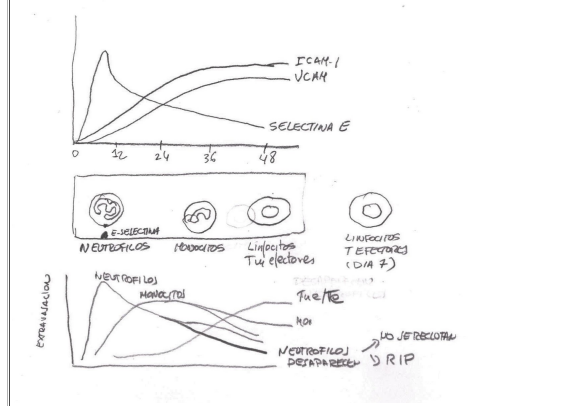 ICAM-1
VCAM
SELECTINA E
0 12 24 36 48
E-SELECTINA
NEUTROFILOS
MONOCITOS
Linfocitos
TM efectores
LINFOCITOS
T EFECTORES
(DIA 7)
EXTRAVASACION
NEUTROFILOS
MONOCITOS
NEUTROFILOS
DESAPARECEN
NO SE RECLUTAN
RIP